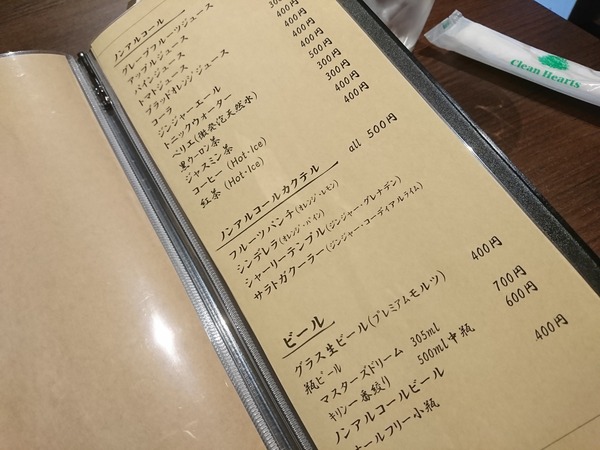 ノンアルコール
グレープフルーツジュース
アップルジュース 400円
パインジュース 400円
トマトジュース 400円
ブラッドオレンジジュース 500円
コーラ 300円
ジンジャーエール 300円
トニックウォーター 400円
ペリエ(微発泡天然水) 400円
黒ウーロン茶
ジャスミン茶
コーヒー (Hot・Ice)
紅茶 (Hot・Ice)
ノンアルコールカクテル all 500円
フルーツパンチ(オレンジ・レモン)
シンデレラ(オレンジ・パイン)
シャーリーテンプル(ジンジャー・グレナデン)
サラトガクーラー(ジンジャー・コーディアルライム)
ビール
グラス生ビール(プレミアムモルツ) 400円
瓶ビール
マスターズドリーム 305ml 700円
キリン一番絞り 500ml中瓶 600円
ノンアルコールビール
オールフリー小瓶 400円
Clean Hearts